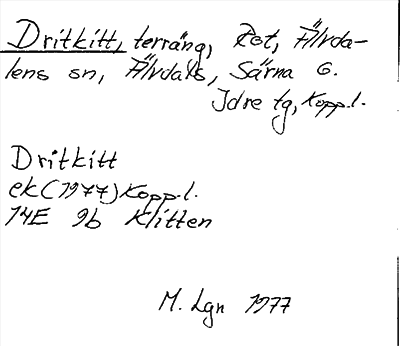 Dritkitt, terräng, Rot, Älvda-
lens sn, Älvdals, Särna o.
Idre tg, Kopp.l.
Dritkitt
ek (1977) Kopp.l.
14E 9b Klitten
M. Lgn 1977